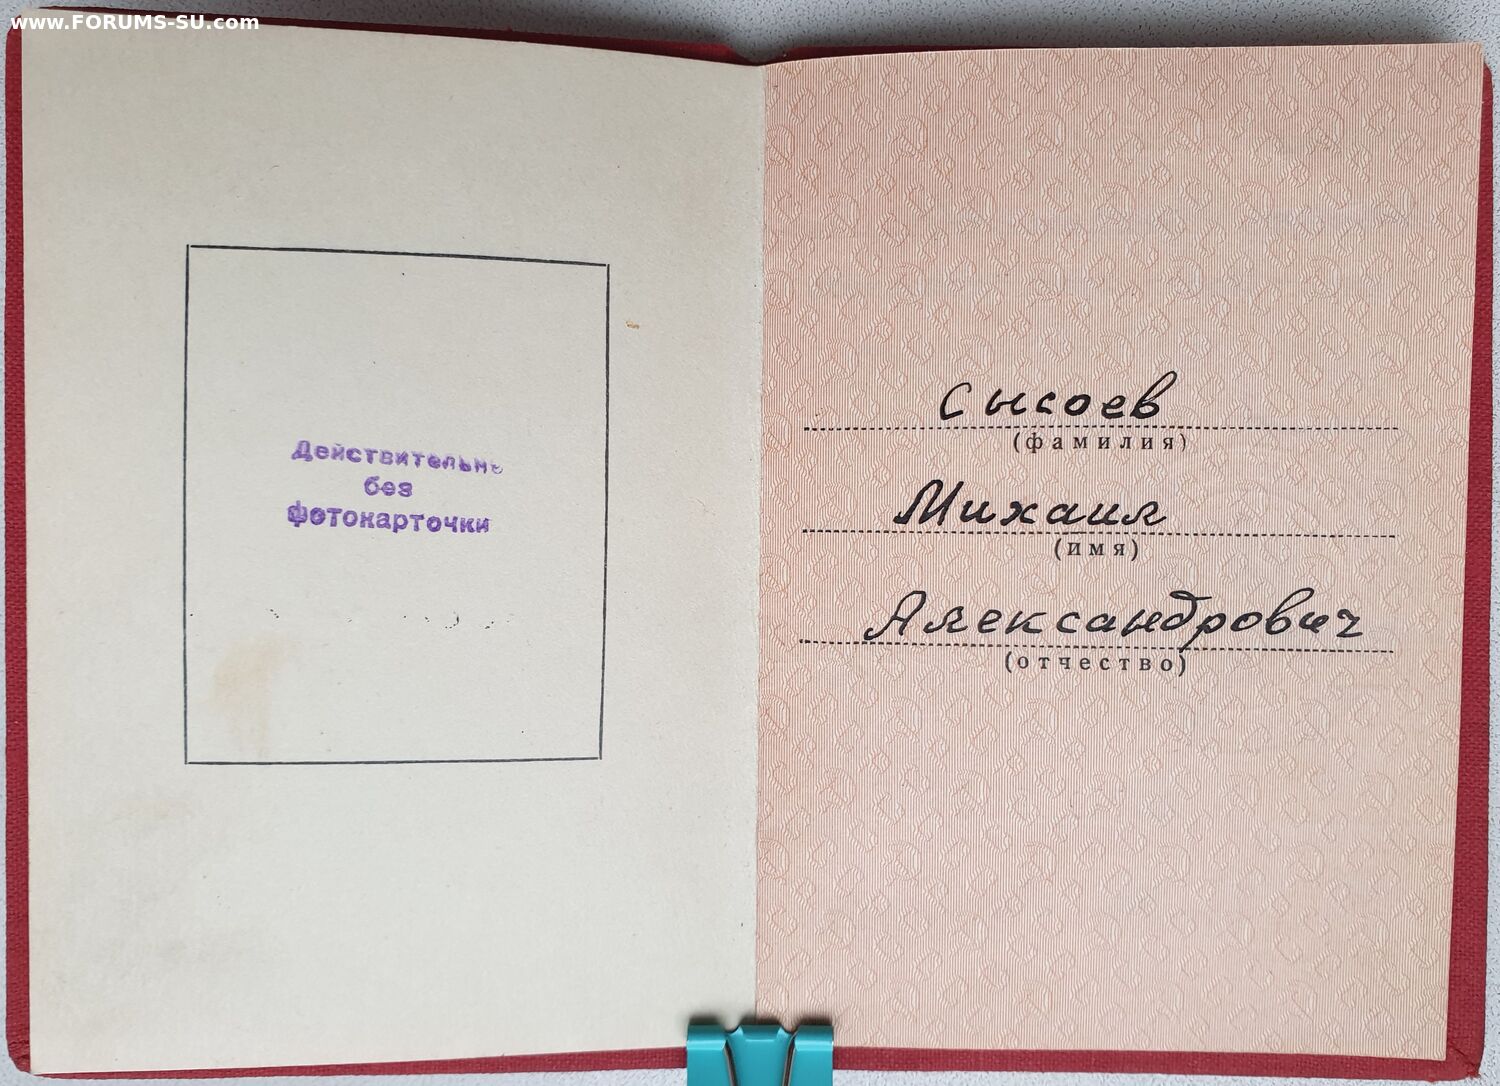 www.FORUMS-SU.com
Действительно
без
фотокарточки
Сысоев
(фамилия)
Михаил
(имя)
Александрович
(отчество)